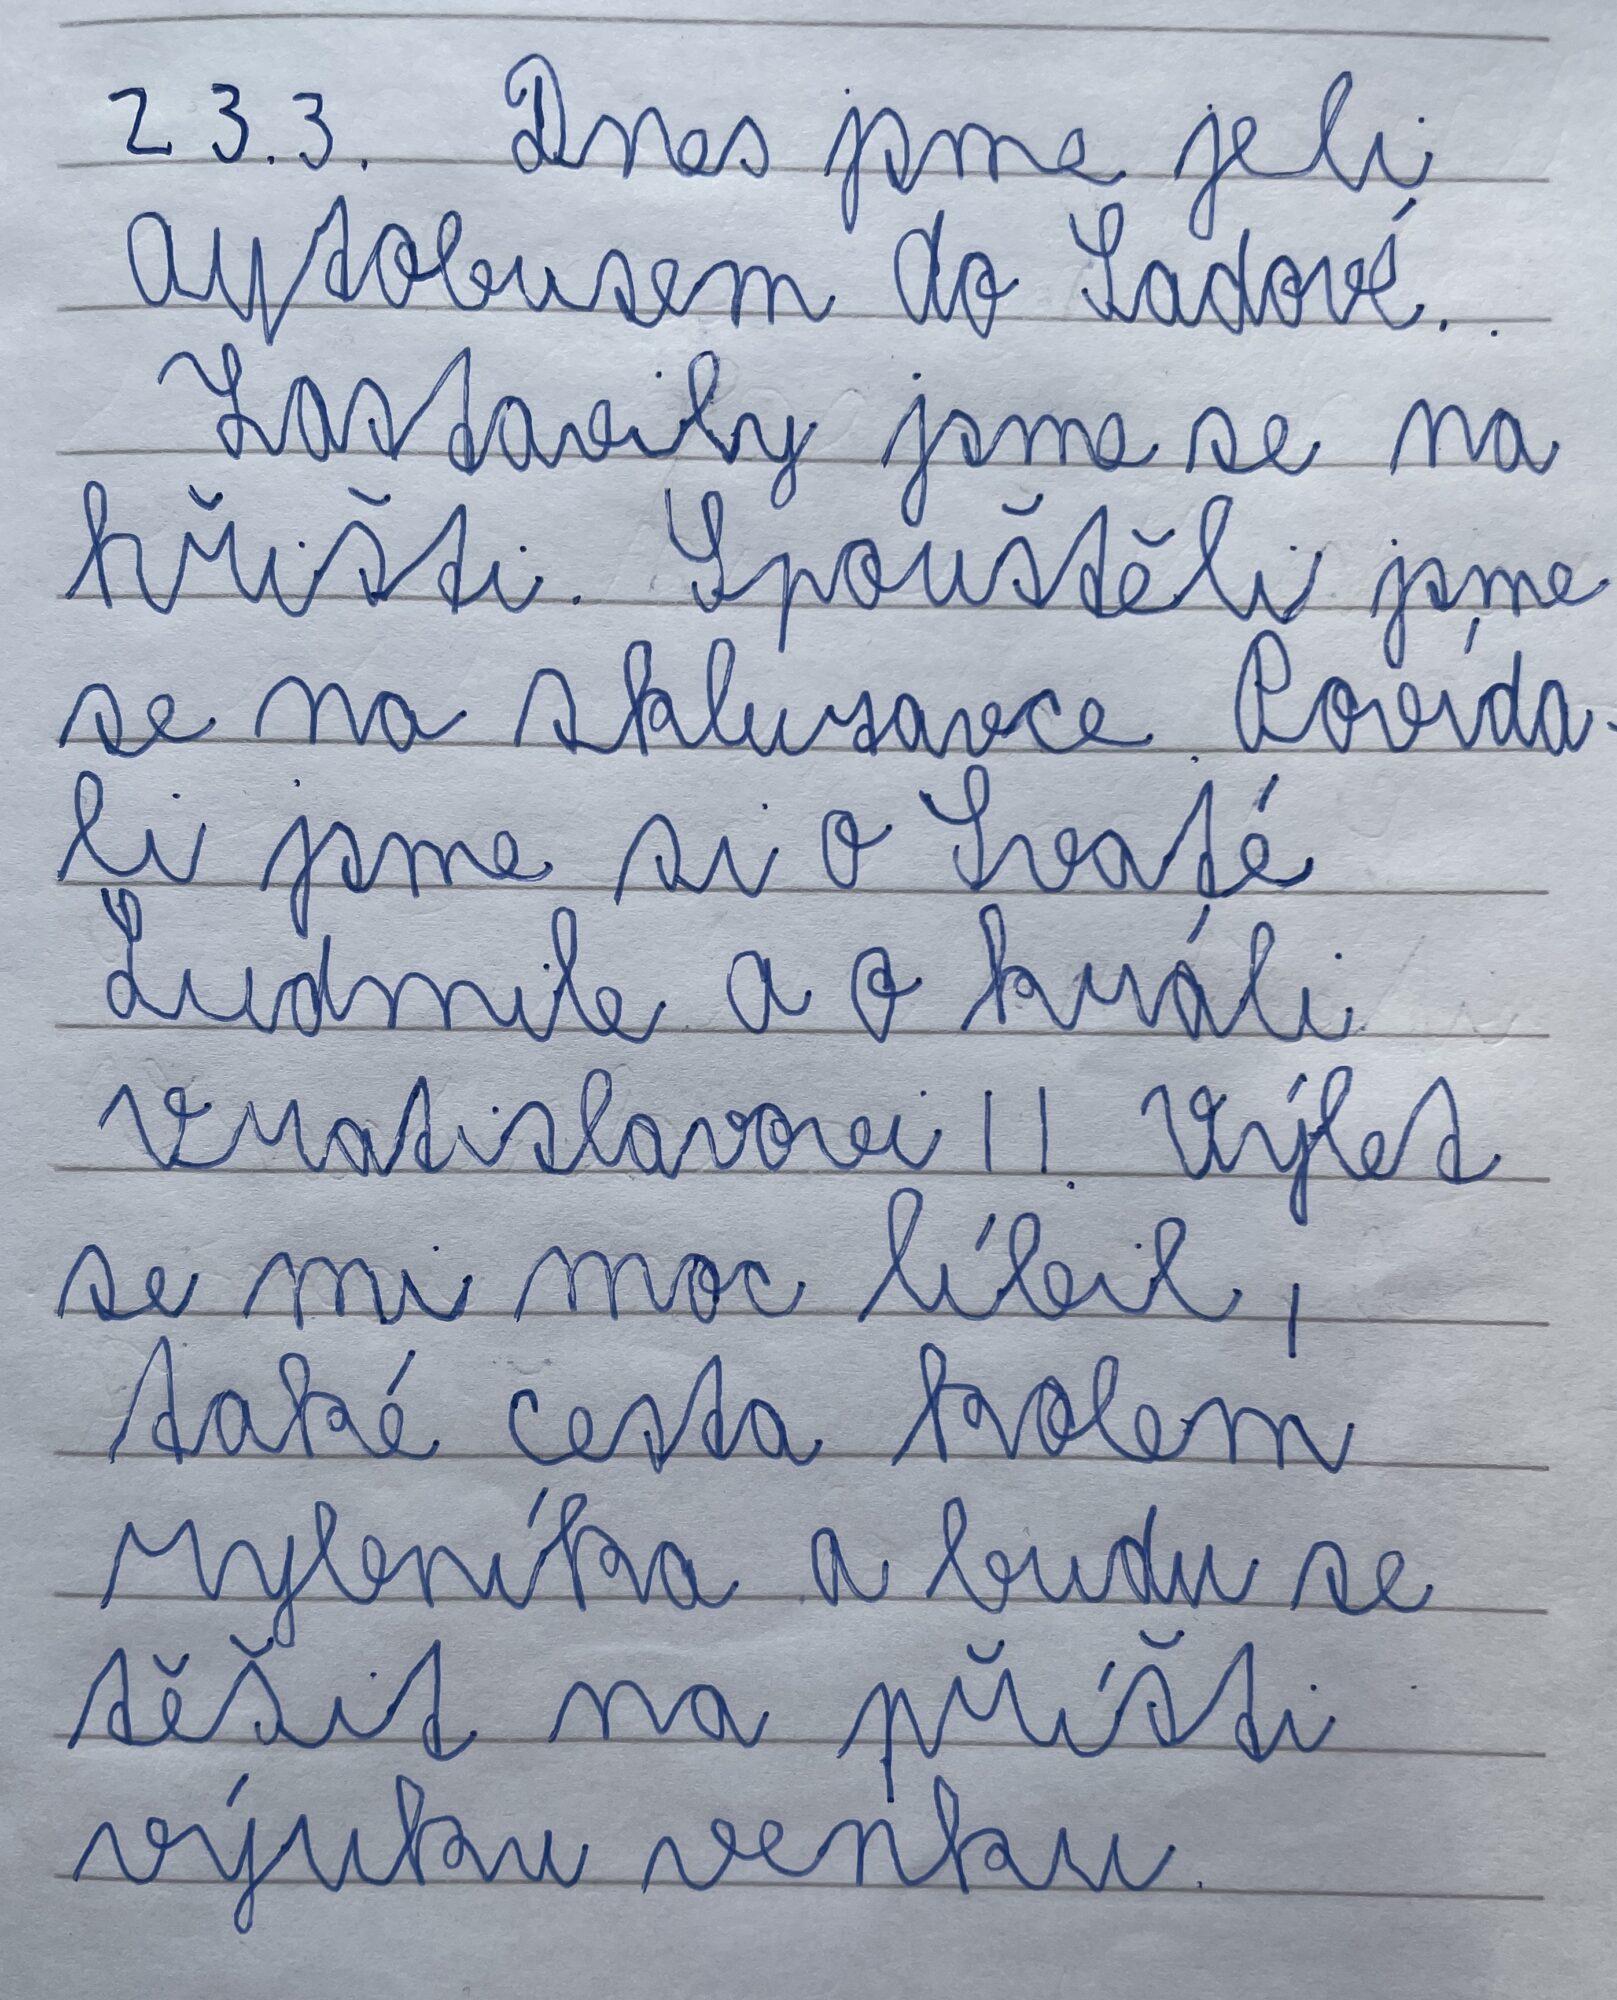 23.3. Dnes jsme jeli
aytobusem do Sadové.
Zastavily jsme se na
hřišti. Spouštěli jsme
se na skluzavce. Povída-
li jsme si o Svaté
Ludmile a o králi
Vratislavovi II. Výlet
se mi moc líbil,
také cesta kolem
rybníka a budu se
těšit na příšti
výuku venku.